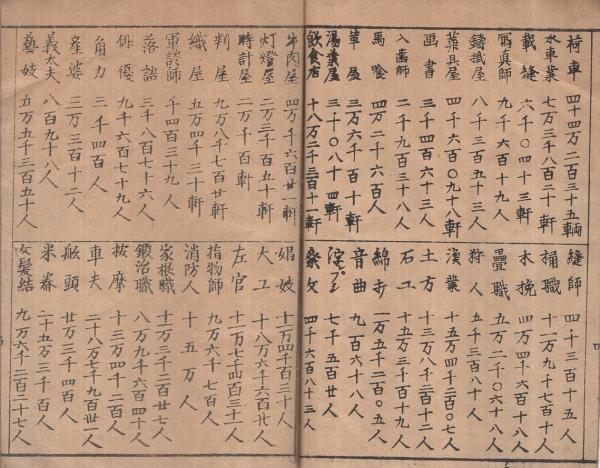 荷車 四十四万二百三十五輌
水車業 七万三千八百二十軒
裁縫 六千〇四十三軒
寫真師 九千六百十九人
鑄掛屋 八千三百五十三人
葬具屋 四千六百〇九十八軒
画書 三千四百六十三人
入歯師 二千九百三十八人
馬喰 四万二千六百人
革屋 三万六千百十軒
湯葉屋 三千〇八十四軒
飲食店 十八万二千三百十一軒
縫師 四千三百十五人
桶職 十一万九千七百十人
木挽 四万四千六百十八人
疊職 五万二千〇六十八人
狩人 五千三百八十人
漁業 十五万四千二百〇七人
土方 十三万八千二百十二人
石工 十五万三千百十九人
綿打 一万五千二百〇五人
音曲 九百六十八人
七千五百廿人
祭文 四千六百八十三人
牛肉屋 四万千六百廿一軒
灯燈屋 二万三千百五十軒
時計屋 二万千百軒
判屋 九万八千七百廿軒
織屋 五万四千三十軒
軍談師 千四百三十九人
落語 三千八百七十六人
俳優 九千六百七十九人
角力 三千四百人
産婆 三万三百十二人
義太夫 八百九十八人
藝妓 五万五千三百五十人
娼妓 十一万四千百三十人
大工 十八万六千六百廿人
左官 十一万七千四百三十一人
指物師 九万六千七百人
消防人 十五万人
家根職 十一万三千二百廿七人
鍛冶職 八万九千六百四十人
按摩 十三万四千二百人
車夫 二十八万七千九百廿一人
船頭 廿万三千四百人
米舂 二十五万三千百人
女髪結 九万六千二百二十七人